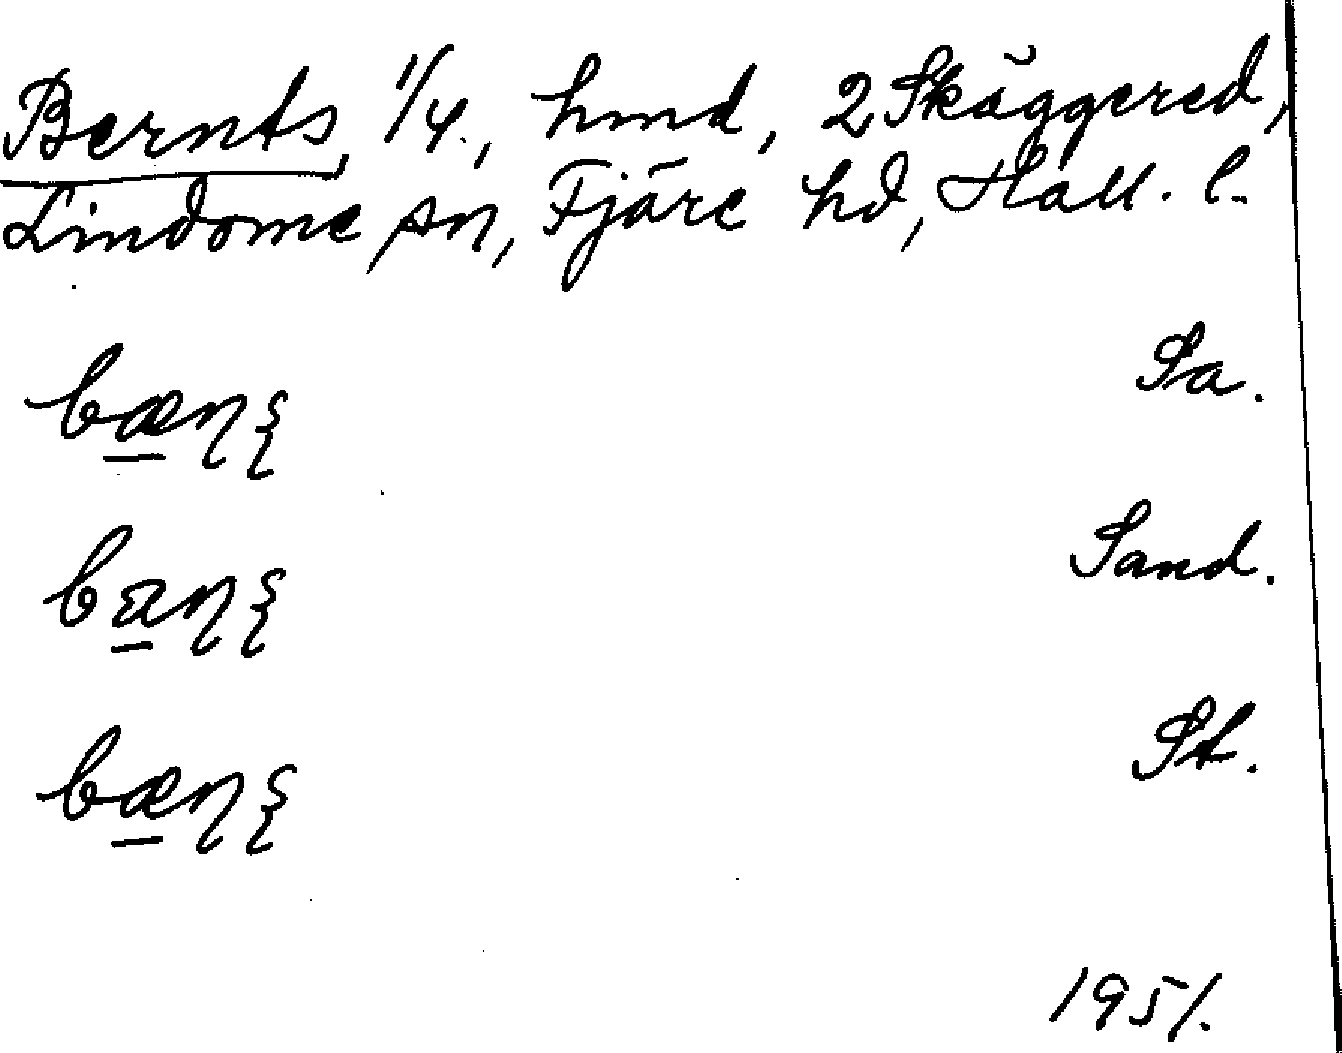 Bernts, 1/4., hmd, 2 Skäggered,
Lindome sn, Fjäre hd, Hall. l.
bæɳʂ Sa.
baɳʂ Sand.
bæɳʂ St.
1951.